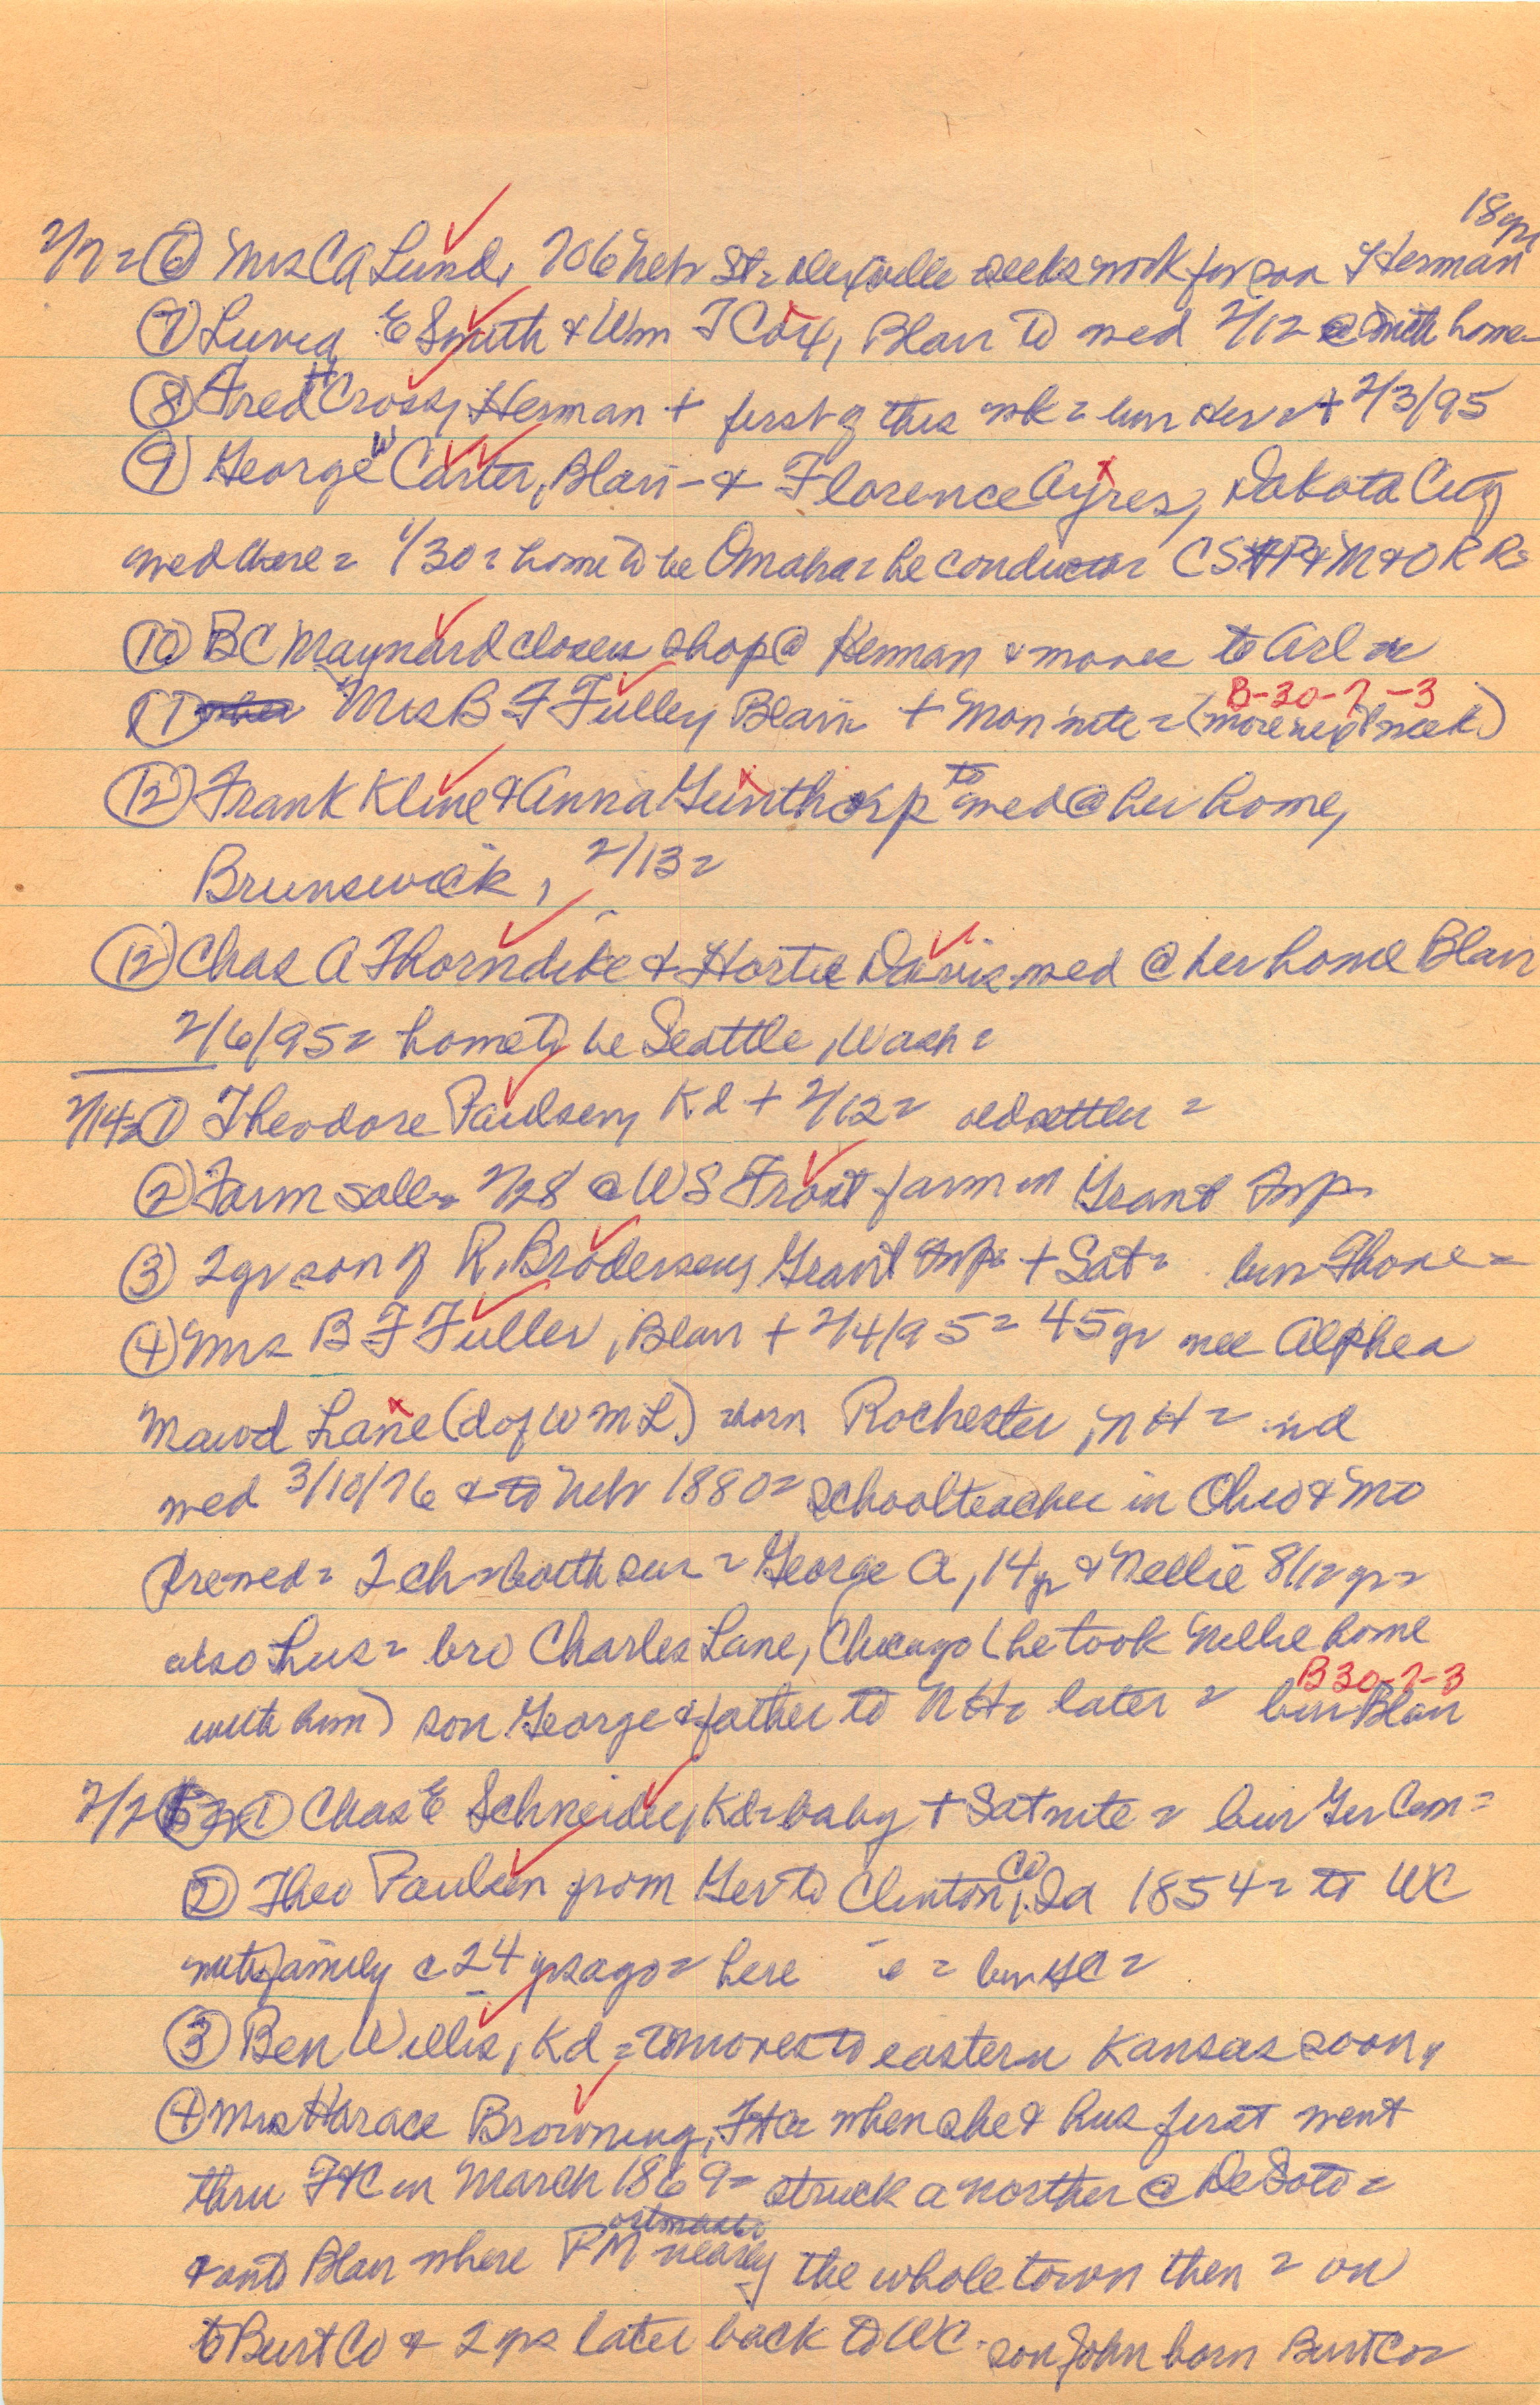 18yr
2/7 = (6) Mrs CA Lund, 706 Nebr St = seeks work for son Herman
(7) E Smith & Wm T Cox, Blair to wed 2/12 @ Smith home
(8) Fred H Cross, Herman + first of this wk = bur Her = + 2/3/95
(9) George W Carter, Blair - & Florence Ayres, Dakota City
wed there = 1/30 = home to be Omaha = he conductor = CStP&M&O RR=
(10) BC Maynard closes shop @ Herman & moves to Arl =
B-30-7-3
(11) Mrs B F Fuller, Blair + Mon nite = (more next week)
(12) Frank Kline & Anna Gunthorp to wed @ her home,
Brunswick, 2/13 =
(12) Chas A Thorndike & Hortie Davis wed @ her home Blair
2/6/95 = home to be Seattle, Wash =
2/14 = (1) Theodore Paulsen, Kd + 2/12 = old settler =
(2) Farm sale = 2/28 @ W S Frost farm in Grant Twp
(3) 2yr son of R. Brodersen, Grant Twp + Sat = bur Thone =
(4) Mrs B F Fuller, Blair + 2/4/95 = 45yr nee Alphea
Maud Lane (d of W M L) born Rochester, NH = nd
wed 3/10/76 & to Nebr 1880 = schoolteacher in Ohio & Mo
prewed = 2 ch = both sur = George A, 14yr & Nellie 8 1/2 yr =
also hus = bro Charles Lane, Chicago (he took Nellie home
B30-7-3
with him) son George & father to NH = later = bur Blair
2/21 = (1) Chas E Schneider, Kd = baby + Sat nite = bur Ger Cem =
(2) Theo Paulsen from Ger to Clinton Co, Ia 1854 = to WC
with family c 24 yrs ago = here = bur HC =
(3) Ben Willis, Kd = moves to eastern Kansas soon,
(4) Mrs Horace Browning, FtC = when she & hus first went
thru FtC in March 1869 = struck a norther @ DeSoto =
ostmaster
& onto Blair where PM nearly the whole town then = on
to Burt Co & 2 yrs later back to WC = son John born Burt Co =